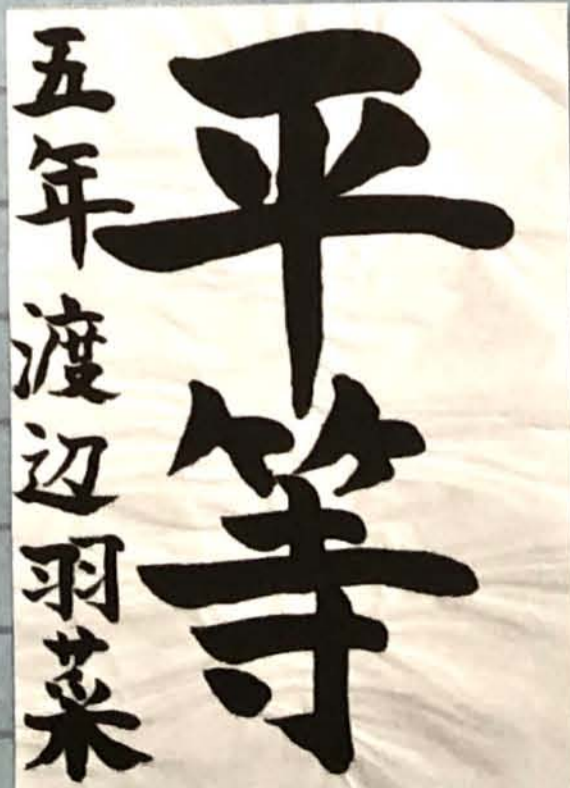 平等
五年 渡辺羽菜